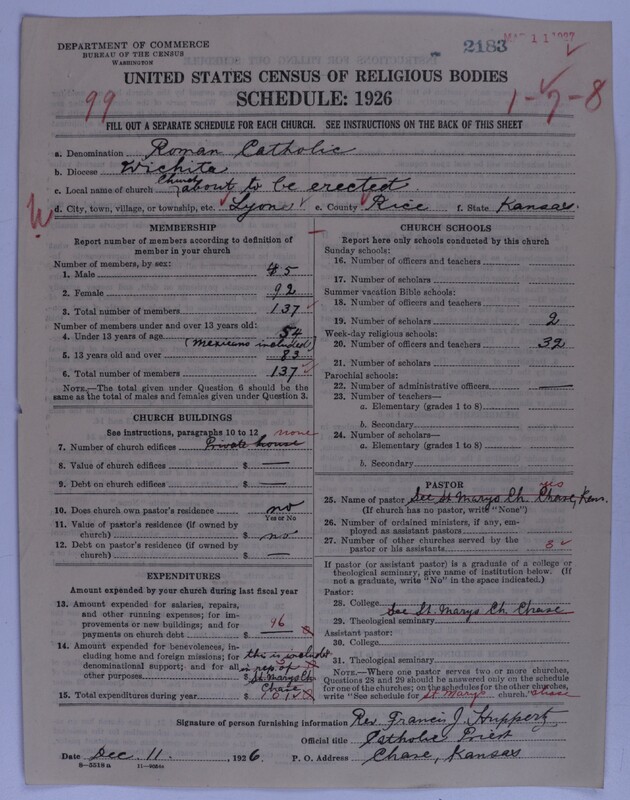 DEPARTMENT OF COMMERCE
BUREAU OF THE CENSUS
WASHINGTON
2183
MAR 11 1927
UNITED STATES CENSUS OF RELIGIOUS BODIES
SCHEDULE: 1926
99
1-7-8
FILL OUT A SEPARATE SCHEDULE FOR EACH CHURCH. SEE INSTRUCTIONS ON THE BACK OF THIS SHEET
a. Denomination Roman Catholic
b. Diocese Wichita
c. Local name of church Church about to be erected
d. City, town, village, or township, etc. Lyons e. County Rice f. State Kansas
MEMBERSHIP
Report number of members according to definition of member in your church
Number of members, by sex:
1. Male 45
2. Female 92
3. Total number of members 137
Number of members under and over 13 years old:
4. Under 13 years of age 54
(Mexicans included)
5. 13 years old and over 83
6. Total number of members 137
NOTE.—The total given under Question 6 should be the same as the total of males and females given under Question 3.
CHURCH BUILDINGS
See instructions, paragraphs 10 to 12 none
7. Number of church edifices Private house
8. Value of church edifices $ —
9. Debt on church edifices $ —
10. Does church own pastor's residence no
Yes or No
11. Value of pastor's residence (if owned by church) $ no
12. Debt on pastor's residence (if owned by church) $ —
EXPENDITURES
Amount expended by your church during last fiscal year
13. Amount expended for salaries, repairs, and other running expenses; for improvements or new buildings; and for payments on church debt $ 96
14. Amount expended for benevolences, including home and foreign missions; for denominational support; and for all other purposes $ this is includ in rep. of St. Marys Ch. Chase
15. Total expenditures during year $
CHURCH SCHOOLS
Report here only schools conducted by this church
Sunday schools:
16. Number of officers and teachers
17. Number of scholars
Summer vacation Bible schools:
18. Number of officers and teachers
19. Number of scholars 2
Week-day religious schools:
20. Number of officers and teachers 32
21. Number of scholars
Parochial schools:
22. Number of administrative officers —
23. Number of teachers—
a. Elementary (grades 1 to 8)
b. Secondary
24. Number of scholars—
a. Elementary (grades 1 to 8)
b. Secondary
PASTOR
yes
25. Name of pastor See St Marys Ch. Chase, Kans.
(If church has no pastor, write "None")
26. Number of ordained ministers, if any, employed as assistant pastors
27. Number of other churches served by the pastor or his assistants 3
If pastor (or assistant pastor) is a graduate of a college or theological seminary, give name of institution below. (If not a graduate, write "No" in the space indicated.)
Pastor:
28. College
See St. Marys Ch. Chase
29. Theological seminary
Assistant pastor:
30. College
31. Theological seminary
NOTE.—Where one pastor serves two or more churches, Questions 28 and 29 should be answered only on the schedule for one of the churches; on the schedules for the other churches, write "See schedule for St Marys church." Chase
Signature of person furnishing information Rev. Francis J. Huppertz
Official title Catholic Priest
Date Dec. 11, 1926. P. O. Address Chase, Kansas
8-5518 a